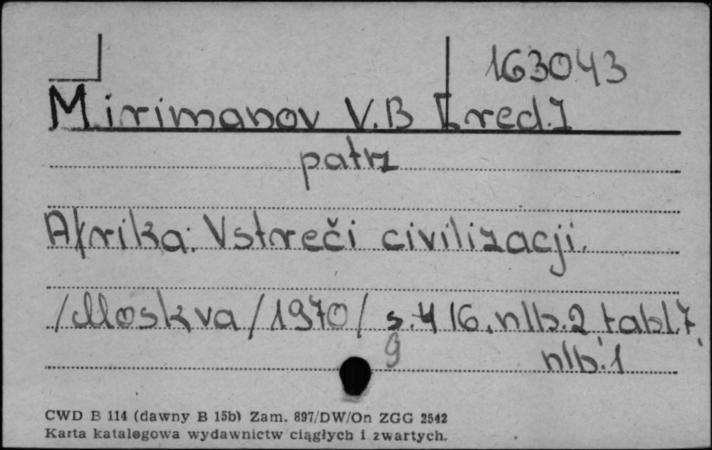 163043
Mirimanov V.B [red.]
patrz
Afrika. Vstreči civilizacji.
/Moskva/1970/ s. 416, nlb. 2, tabl. 7,
9 nlb. 1
CWD B 114 (dawny B 15b) Zam. 897/DW/On ZGG 2542
Karta katalogowa wydawnictw ciągłych i zwartych.